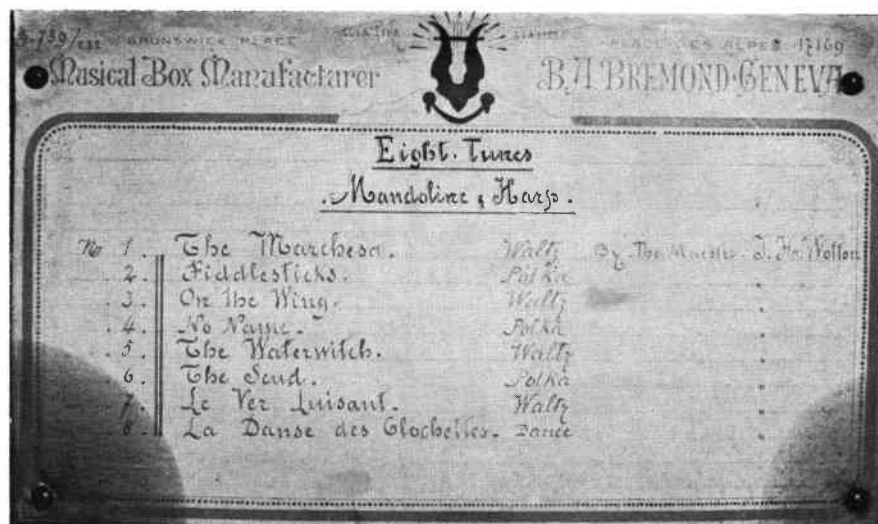 BRUNSWICK PLACE PLACE DES ALPES 17169
Musical Box Manufacturer B.A BREMOND·GENEVA
Eight. Tunes
. Mandoline & Harp .
No 1 . The Marchesa. Waltz By The Maestro J. Ho Notton
. 2 . Fiddlesticks. Polka "
. 3 . On the Wing. Waltz "
. 4 . No Name. Polka "
. 5 . The Waterwitch. Waltz "
. 6 . The Scud. Polka "
. 7 . Le Ver Luisant. Waltz "
. 8 . La Danse des Clochettes. Dance "